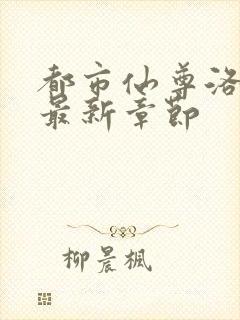 都市仙尊洛
最新章節
柳晨楓